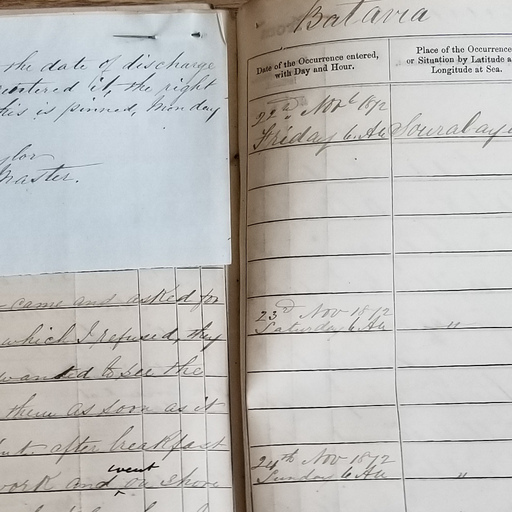 the date of discharge
entered it, the right
this is pinned, Monday
Master.
came and asked for
which I refused, they
wanted to see the
them as soon as it
but after breakfast
went
work and on shore
Batavia
Date of the Occurrence entered, with Day and Hour.
Place of the Occurrence or Situation by Latitude a Longitude at Sea.
22nd Nov 1872
Friday 6 AM Sourabaya
23rd Nov 1872
Saturday 6 AM "
24th Nov 1872
Sunday 6 AM "